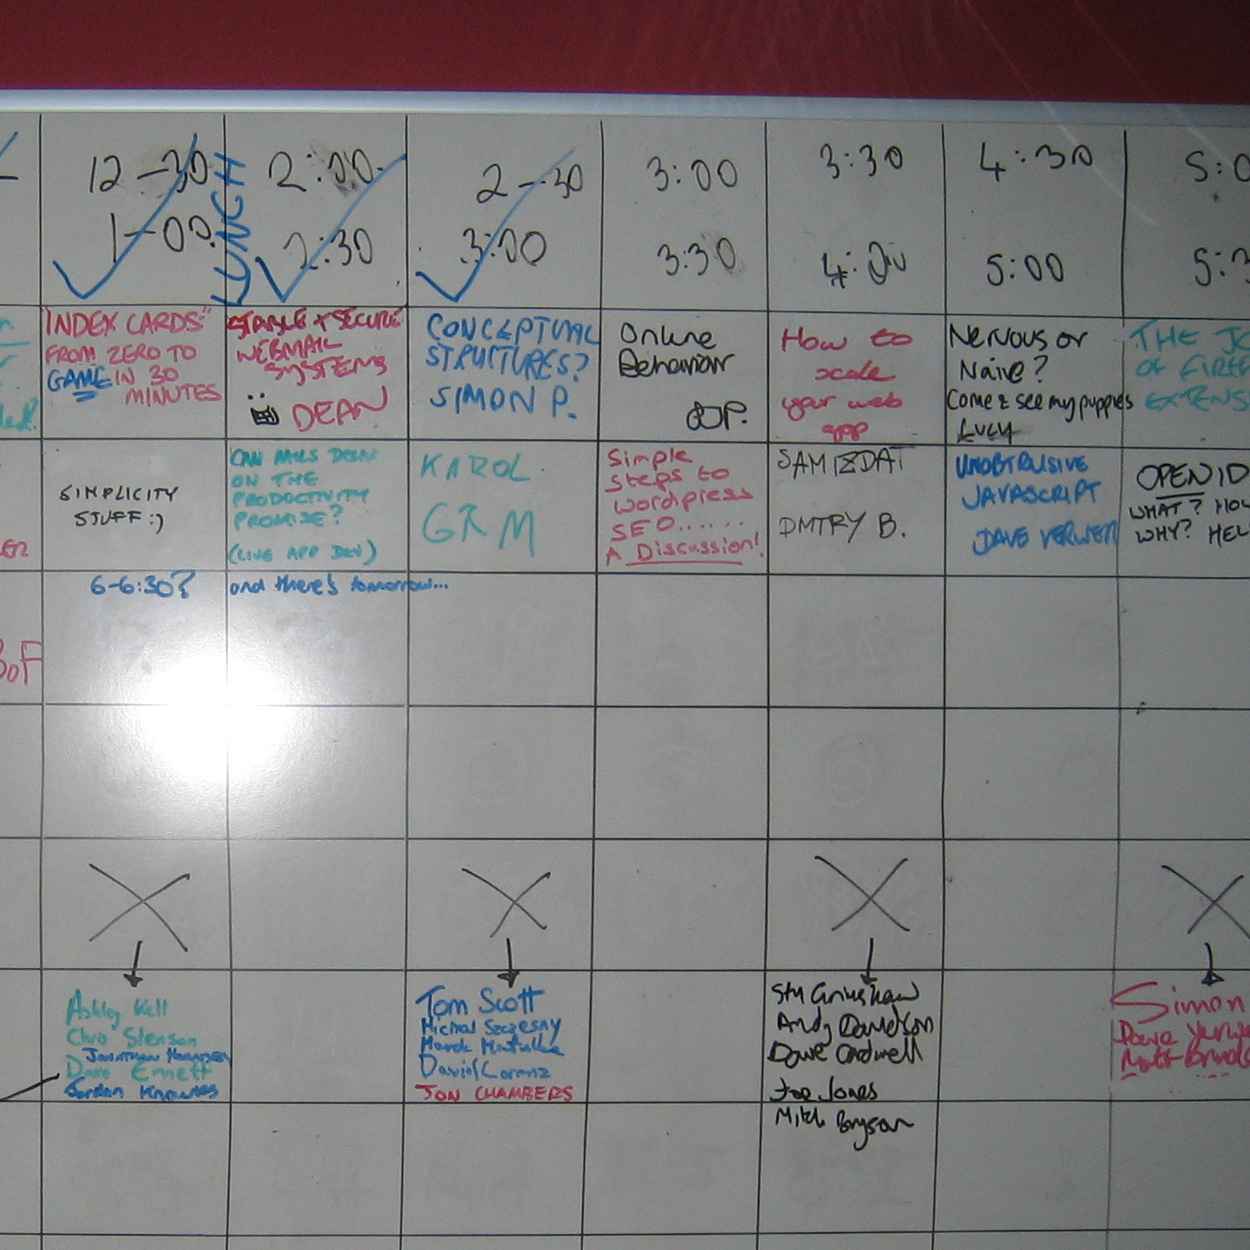 12-30
1-00
LUNCH
2:00
2:30
2-30
3:00
3:00
3:30
3:30
4:00
4:30
5:00
5:0
5:3
"INDEX CARDS"
FROM ZERO TO
GAME IN 30
MINUTES
STABLE & SECURE
WEBMAIL
SYSTEMS
DEAN
CONCEPTUAL
STRUCTURES?
SIMON P.
Online
Behaviour
How to
scale
your web
app
Nervous or
Naive?
Come & see my puppies
Lucy
THE JO
OF FIREF
EXTENS
SIMPLICITY
STUFF :)
ON THE
PRODUCTIVITY
PROMISE?
(LIVE APP DEV)
KAROL
GRM
Simple
steps to
wordpress
SEO.......
A Discussion!
SAMIZDAT
DMTRY B.
UNOBTRUSIVE
JAVASCRIPT
DAVE VERWER
OPEN ID
WHAT? HOW
WHY? HEL
6-6:30?
and there's tomorrow...
BoF
Ashley
Chris Stenson
Jonathan
Dave Emett
Jordan Knowles
Tom Scott
Michal Szczesny
Marek
David Lorenz
JON CHAMBERS
Stu Grimshaw
Andy Davidson
Dave Cardwell
Joe Jones
Mitch Bryson
Simon
Dave
Matt